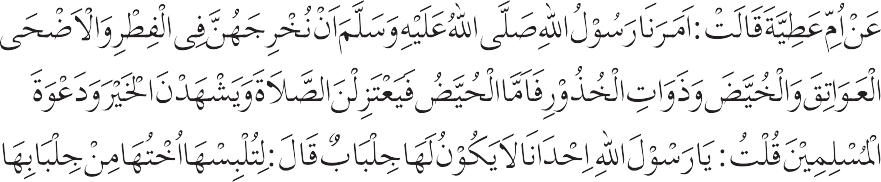 عَنْ اُمِّ عَطِيَّةَ قَالَتْ : اَمَرَنَا رَسُوْلُ اللهِ صَلَّى اللهُ عَلَيْهِ وَسَلَّمَ اَنْ نُخْرِجَهُنَّ فِى الْفِطْرِ وَالْاَضْحَى
الْعَوَاتِقَ وَالْحُيَّضَ وَذَوَاتِ الْخُذُوْرِ فَاَمَّا الْحُيَّضُ فَيَعْتَزِلْنَ الصَّلاَةَ وَيَشْهَدْنَ الْخَيْرَ وَدَعْوَةَ
الْمُسْلِمِيْنَ قُلْتُ : يَا رَسُوْلَ اللهِ اِحْدَانَا لاَ يَكُوْنُ لَهَا جِلْبَابٌ قَالَ : لِتُلْبِسْهَا اُخْتُهَا مِنْ جِلْبَابِهَا